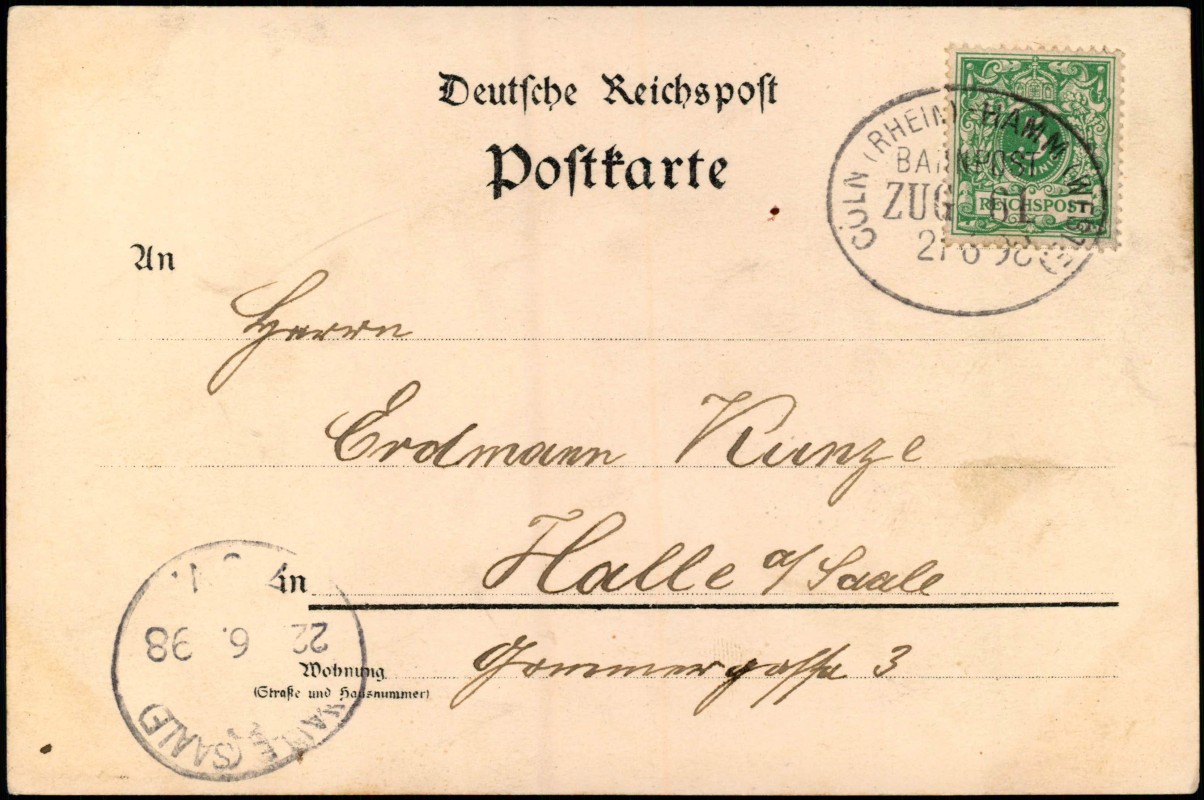 Deutsche Reichspost
Postkarte
CÖLN (RHEIN)-HAMM (WESTF)
BAHNPOST
ZUG 61
21 6 98
REICHSPOST
An
Herrn
Erdmann Kunze
in Halle a/Saale
Wohnung
(Straße und Hausnummer)
3
HALLE (SAALE)
22 6. 98
N.